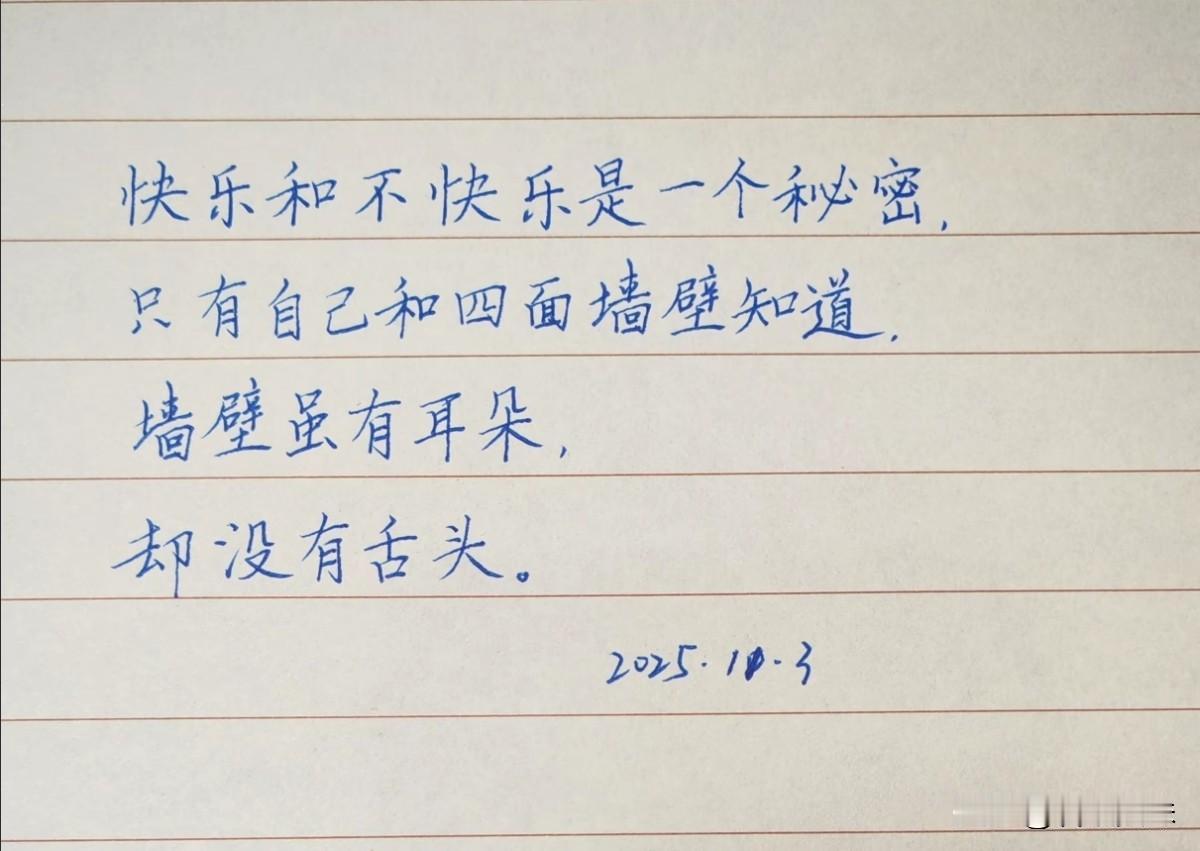 快乐和不快乐是一个秘密,
只有自己和四面墙壁知道.
墙壁虽有耳朵,
却没有舌头。